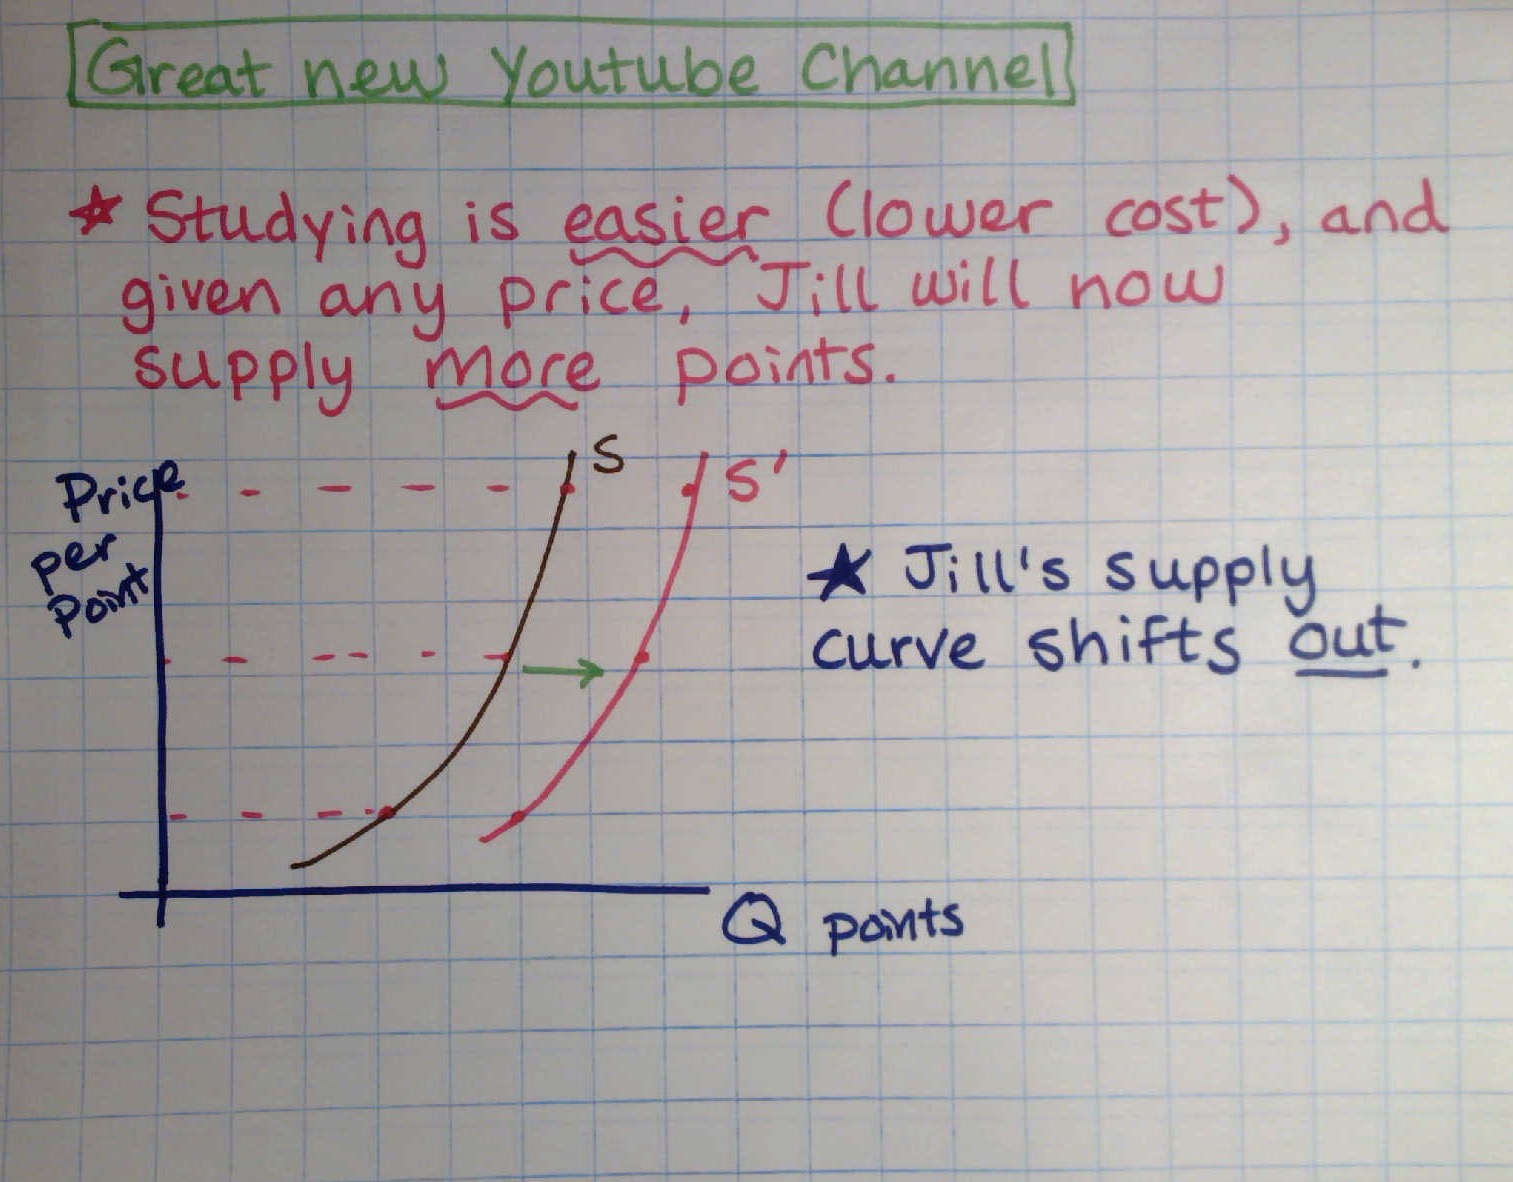 Great new Youtube Channel
★ Studying is easier (lower cost), and
given any price, Jill will now
supply more points.
Price
per
Point
S
S'
★ Jill's supply
curve shifts out.
Q points